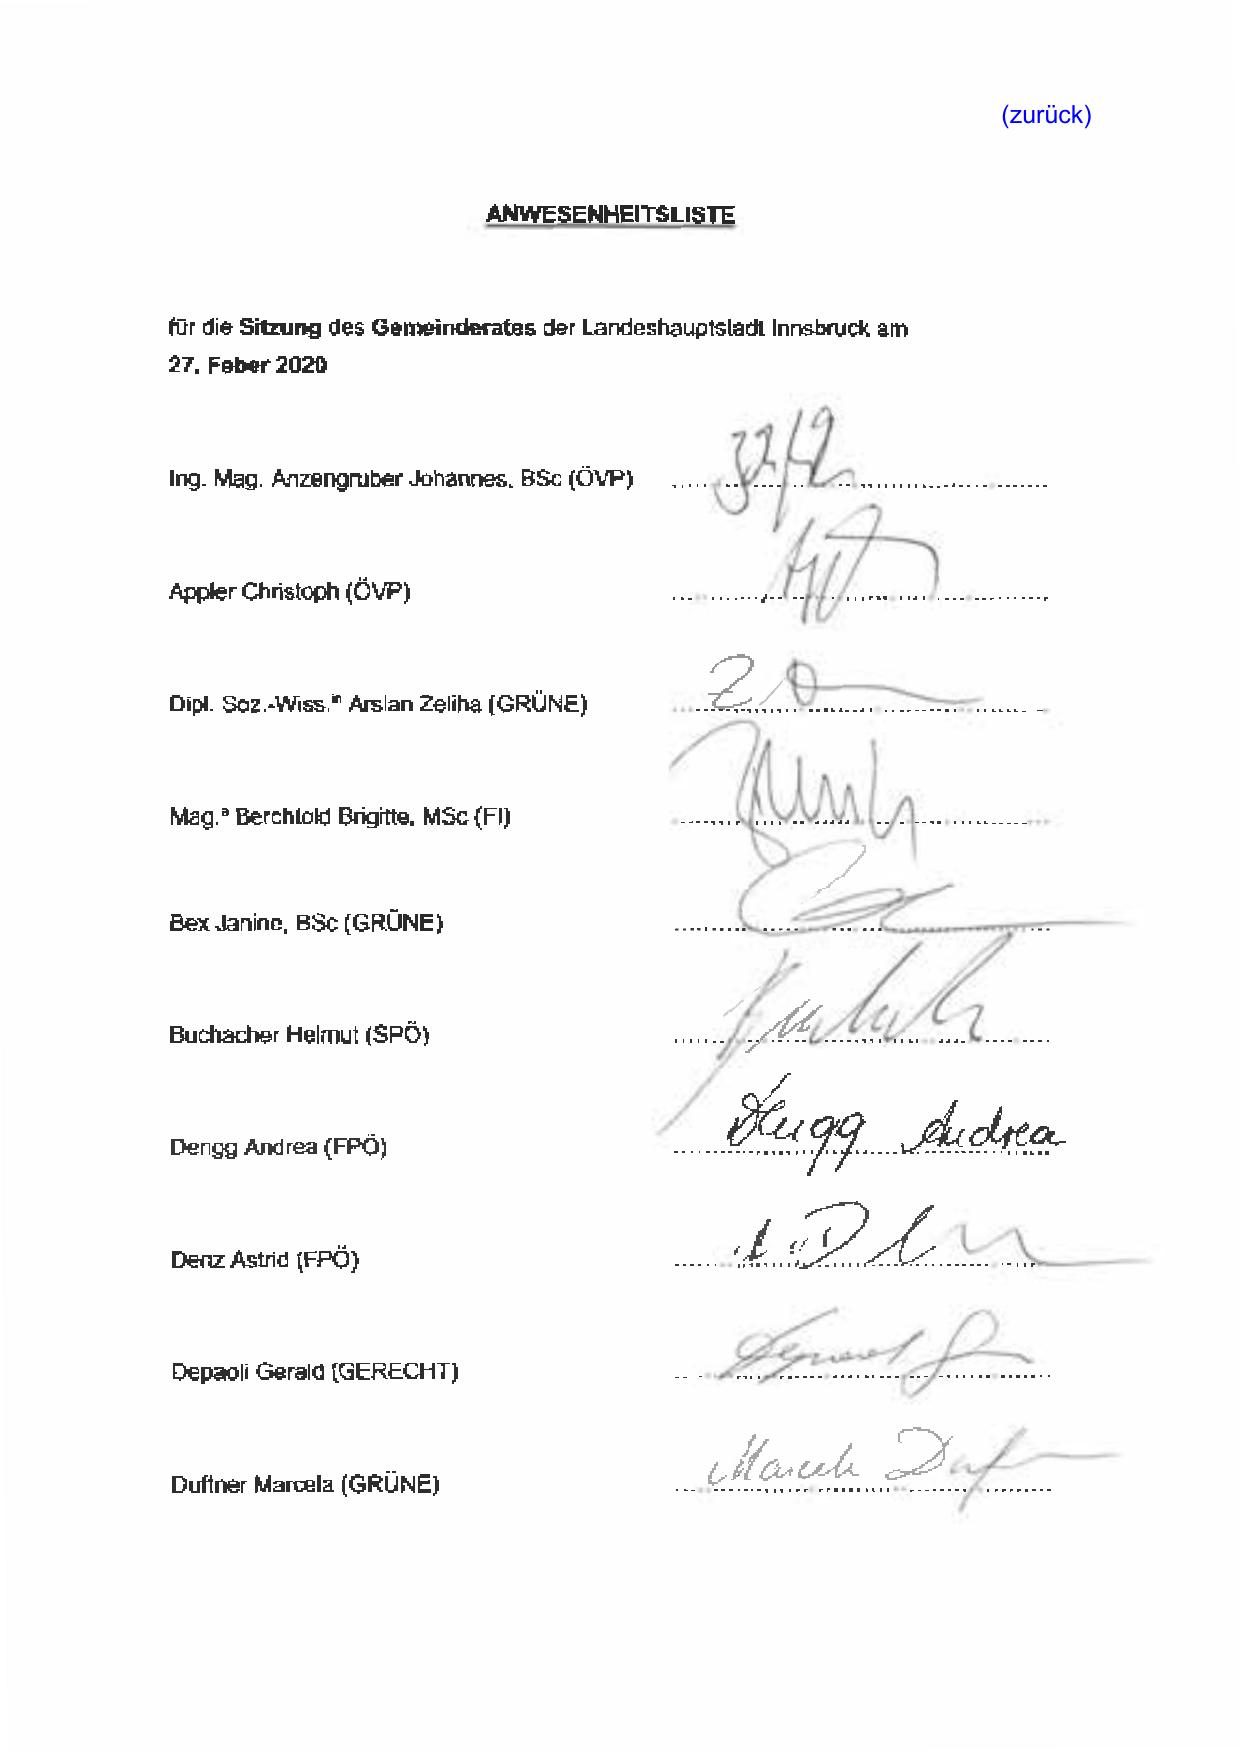 (zurück)
ANWESENHEITSLISTE
für die Sitzung des Gemeinderates der Landeshauptstadt Innsbruck am
27. Feber 2020
Ing. Mag. Anzengruber Johannes, BSc (ÖVP)
Appler Christoph (ÖVP)
Dipl. Soz.-Wiss.in Arslan Zeliha (GRÜNE)
Mag.a Berchtold Brigitte, MSc (FI)
Bex Janine, BSc (GRÜNE)
Buchacher Helmut (SPÖ)
Dengg Andrea (FPÖ) Dengg Andrea
Denz Astrid (FPÖ)
Depaoli Gerald (GERECHT)
Duftner Marcela (GRÜNE) Marcela